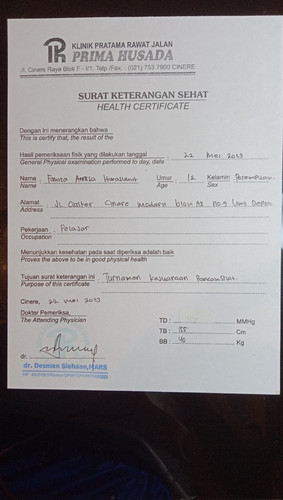 KLINIK PRATAMA RAWAT JALAN
PRIMA HUSADA
Jl. Cinere Raya Blok F - I/1, Telp./Fax. : (021) 753 7900 CINERE
SURAT KETERANGAN SEHAT
HEALTH CERTIFICATE
Dengan ini menerangkan bahwa
This is certify that, the result of the
Hasil pemeriksaan fisik yang dilakukan tanggal : 22 Mei 2013
General Physical examination performed to day, date
Nama : Umur : 12 Kelamin : Perempuan
Name Age Sex
Alamat : Jl. Cinere blok no.9 Limo Depok
Address
Pekerjaan : Pelajar
Occupation
Menunjukkan kesehatan pada saat diperiksa adalah baik
Proves the above to be in good physical health
Tujuan surat keterangan ini : Turnamen Kejuaraan
Purpose of this certificate
Cinere, 22 Mei 2013
Dokter Pemeriksa,
The Attending Physician
TD : MMHg
TB : 155 Cm
BB : 40 Kg
dr.